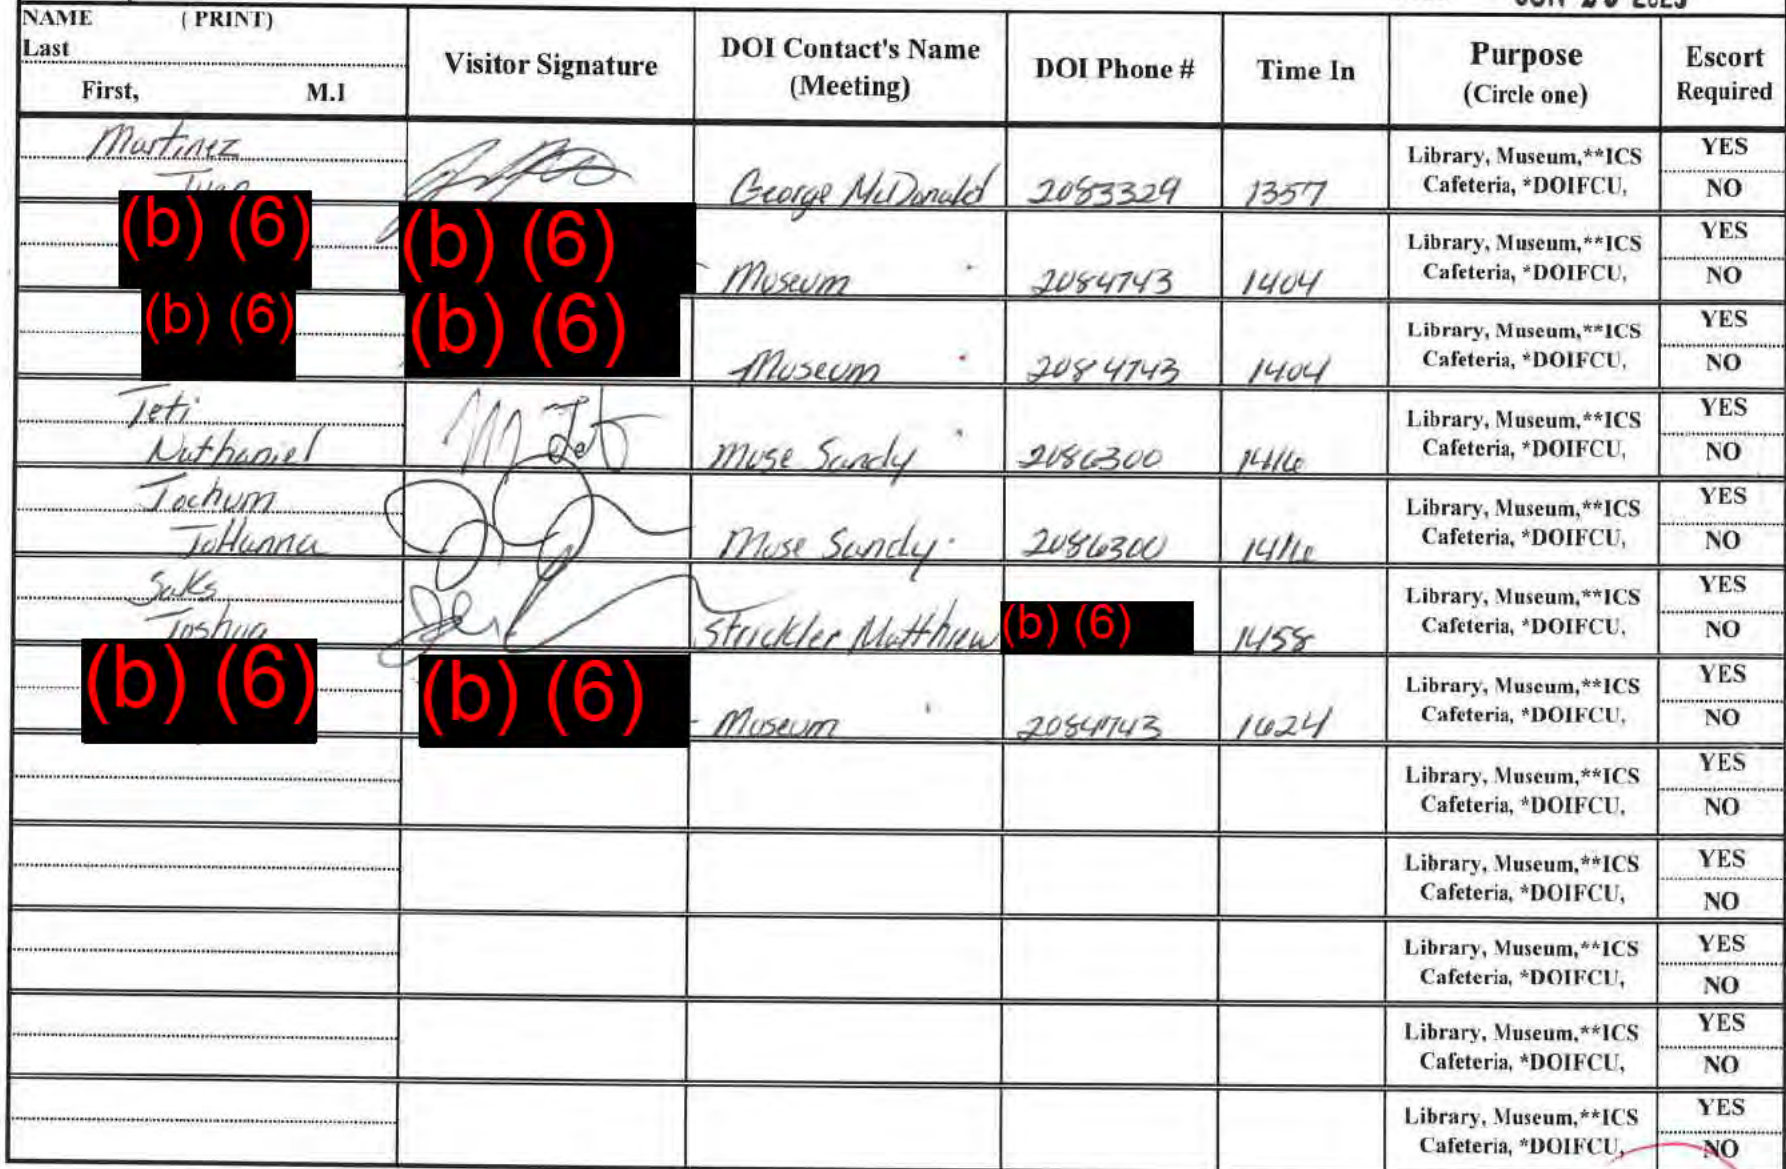 NAME ( PRINT)
Last
First, M.I
Visitor Signature
DOI Contact's Name
(Meeting)
DOI Phone #
Time In
Purpose
(Circle one)
Escort
Required
Martinez
Juan
George McDonald 2083329 1357
Library, Museum,**ICS
Cafeteria, *DOIFCU,
YES
NO
(b) (6) (b) (6)
Museum 2084743 1404
Library, Museum,**ICS
Cafeteria, *DOIFCU,
YES
NO
(b) (6) (b) (6)
Museum 2084743 1404
Library, Museum,**ICS
Cafeteria, *DOIFCU,
YES
NO
Teti
Nathaniel
Muse Sandy 2086300 1416
Library, Museum,**ICS
Cafeteria, *DOIFCU,
YES
NO
Jochum
JoHanna
Muse Sandy 2086300 1416
Library, Museum,**ICS
Cafeteria, *DOIFCU,
YES
NO
Saks
Joshua
Strickler Matthew (b) (6) 1458
Library, Museum,**ICS
Cafeteria, *DOIFCU,
YES
NO
(b) (6) (b) (6)
Museum 2084743 1624
Library, Museum,**ICS
Cafeteria, *DOIFCU,
YES
NO
Library, Museum,**ICS
Cafeteria, *DOIFCU,
YES
NO
Library, Museum,**ICS
Cafeteria, *DOIFCU,
YES
NO
Library, Museum,**ICS
Cafeteria, *DOIFCU,
YES
NO
Library, Museum,**ICS
Cafeteria, *DOIFCU,
YES
NO
Library, Museum,**ICS
Cafeteria, *DOIFCU,
YES
NO